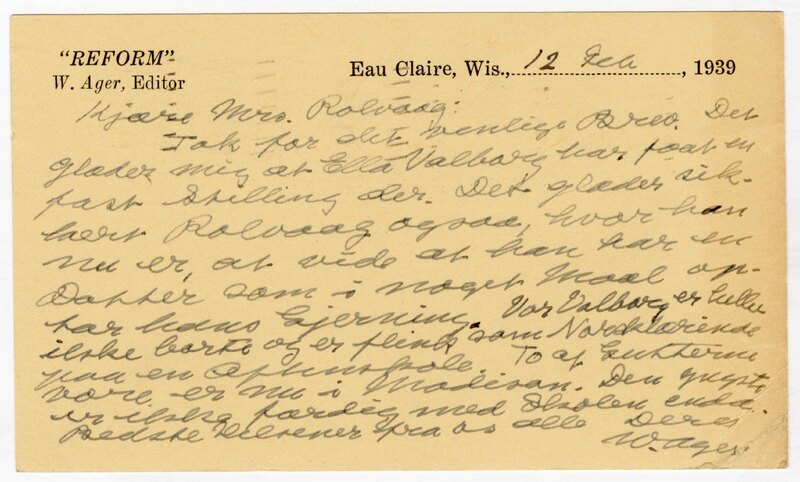 "REFORM"
W. Ager, Editor
Eau Claire, Wis., 12 Feb , 1939
Kjære Mrs. Rolvaag:
Tak for det venlige Brev. Det
glæder mig at Ella Valborg har faat en
fast Stilling der. Det glæder sik-
kert Rolvaag ogsaa, hvor han
nu er, at vide at han har en
Datter som i noget Maal op-
tar hans Gjerning. Vor Valborg er heller
ikke borte og er flink som Norsklærerinde
paa en Aftenskole. To af Gutterne
vore er nu i Madison. Den yngste
er ikke færdig med Skolen enda.
Bedste Hilsener fra os alle Deres
W. Ager